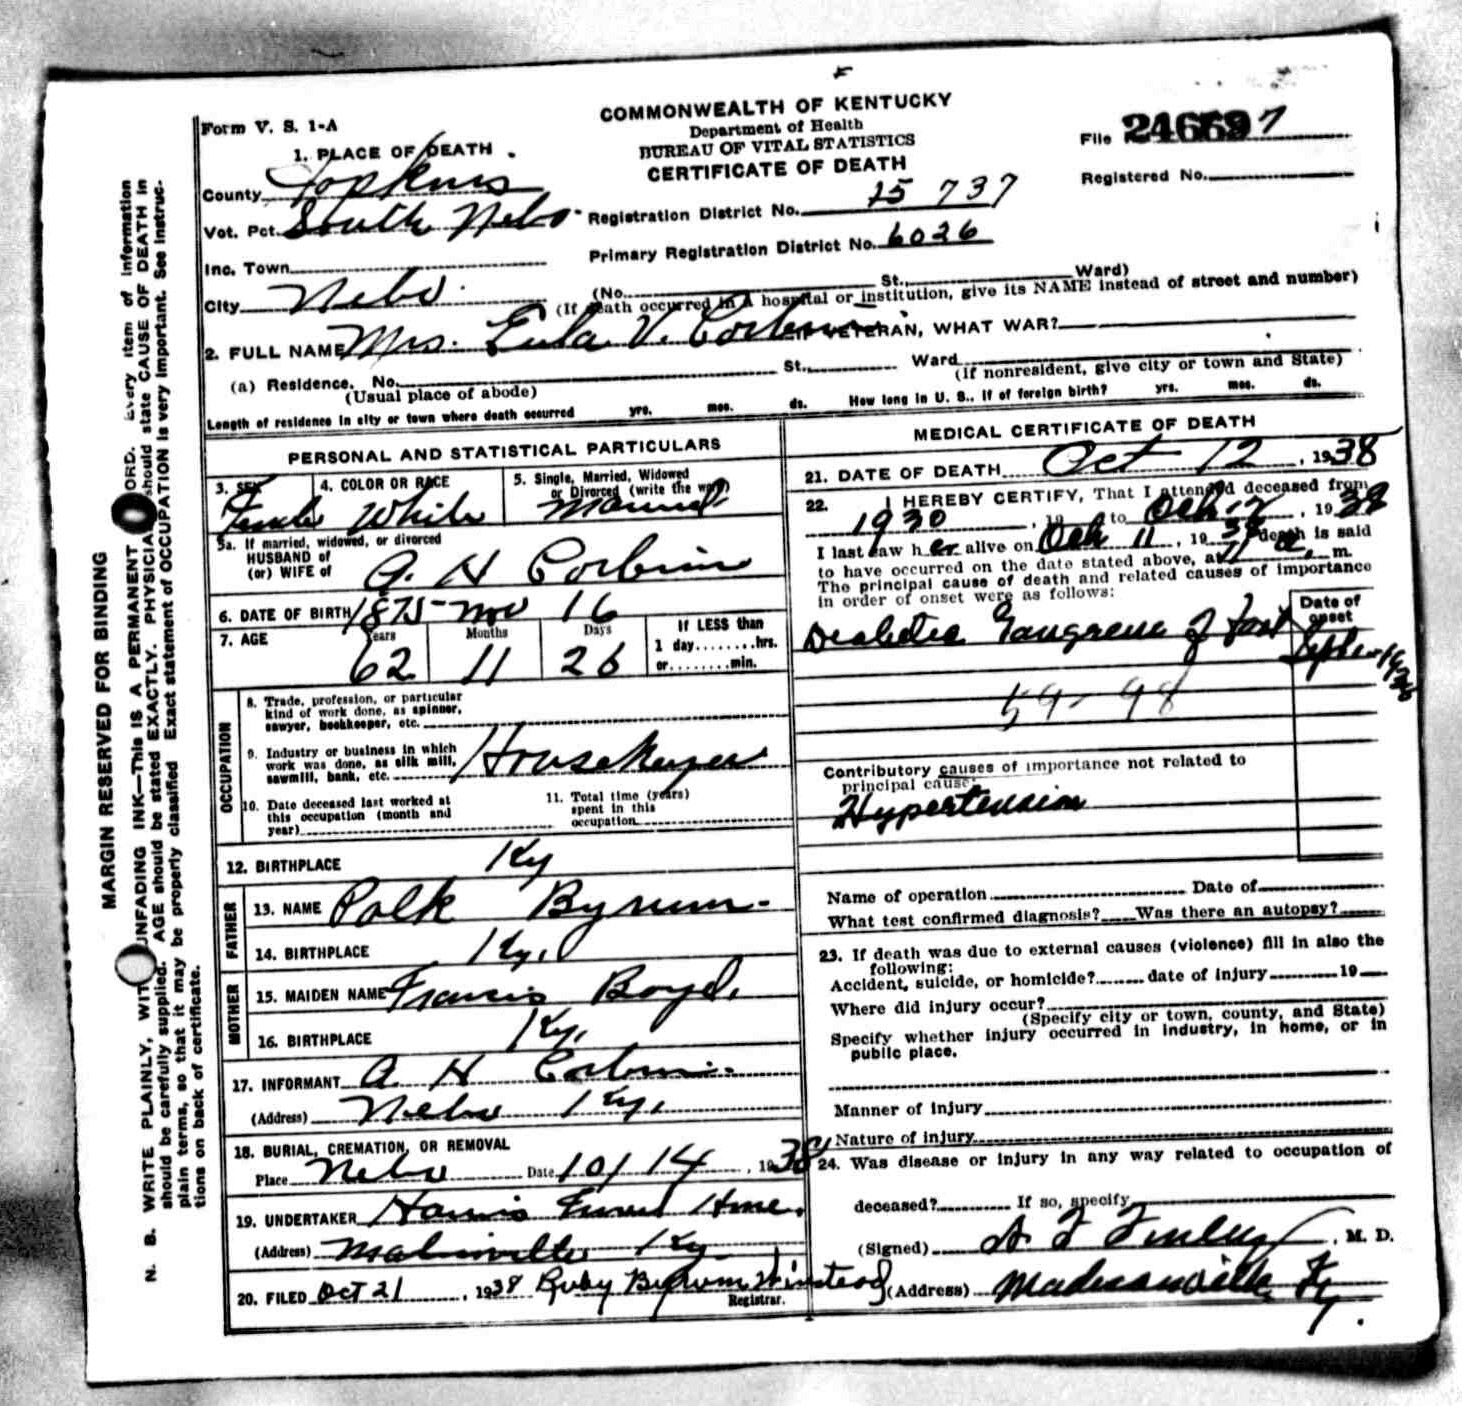 Form V. S. 1-A
COMMONWEALTH OF KENTUCKY
Department of Health
BUREAU OF VITAL STATISTICS
CERTIFICATE OF DEATH
File
Registered No.
1. PLACE OF DEATH
County Hopkins
Vot. Pct. South Nebo
Inc. Town
City Nebo
Registration District No. 737
Primary Registration District No. 6026
(No. St., Ward)
(If death occurred in a hospital or institution, give its NAME instead of street and number)
2. FULL NAME Mrs. Eula V. Corbin IF VETERAN, WHAT WAR?
(a) Residence. No. St., Ward
(Usual place of abode) (If nonresident, give city or town and State)
Length of residence in city or town where death occurred yrs. mos. ds. How long in U. S., if of foreign birth? yrs. mos. ds.
PERSONAL AND STATISTICAL PARTICULARS
3. SEX 4. COLOR OR RACE 5. Single, Married, Widowed
or Divorced (write the word)
Female White Married
5a. If married, widowed, or divorced
HUSBAND of
(or) WIFE of A. H Corbin
6. DATE OF BIRTH 1875 Nov 16
7. AGE Years Months Days If LESS than
1 day........hrs.
or........min.
62 11 26
OCCUPATION
8. Trade, profession, or particular
kind of work done, as spinner,
sawyer, bookkeeper, etc.
9. Industry or business in which
work was done, as silk mill,
sawmill, bank, etc. Housekeeper
10. Date deceased last worked at
this occupation (month and
year)
11. Total time (years)
spent in this
occupation
12. BIRTHPLACE Ky
FATHER
13. NAME Polk Byrum
14. BIRTHPLACE Ky.
MOTHER
15. MAIDEN NAME Francis Boyd.
16. BIRTHPLACE Ky.
17. INFORMANT A H Corbin
(Address) Nebo Ky.
18. BURIAL, CREMATION, OR REMOVAL
Place Nebo Date 10/14, 1938
19. UNDERTAKER Harris Funeral Home.
(Address) Madisonville Ky
20. FILED Oct 21, 1938 Ruby Byrum Winstead
Registrar.
MEDICAL CERTIFICATE OF DEATH
21. DATE OF DEATH Oct 12, 1938
22. I HEREBY CERTIFY, That I attended deceased from
1930, 19 to Oct 12, 1938
I last saw her alive on Oct 11, 1938 death is said
to have occurred on the date stated above, at 11 a. m.
The principal cause of death and related causes of importance
in order of onset were as follows:
Date of
onset
Diabetic Gangrene of foot
59-98
Contributory causes of importance not related to
principal cause:
Hypertension
Name of operation Date of
What test confirmed diagnosis? Was there an autopsy?
23. If death was due to external causes (violence) fill in also the
following:
Accident, suicide, or homicide? date of injury 19
Where did injury occur?
(Specify city or town, county, and State)
Specify whether injury occurred in industry, in home, or in
public place.
Manner of injury
Nature of injury
24. Was disease or injury in any way related to occupation of
deceased? If so, specify
(Signed) A. F Finley, M. D.
(Address) Madisonville Ky.
MARGIN RESERVED FOR BINDING
N. B. WRITE PLAINLY, WITH UNFADING INK—This IS A PERMANENT RECORD. Every item of information
should be carefully supplied. AGE should be stated EXACTLY. PHYSICIANS should state CAUSE OF DEATH in
plain terms, so that it may be properly classified. Exact statement of OCCUPATION is very important. See Instruc-
tions on back of certificate.